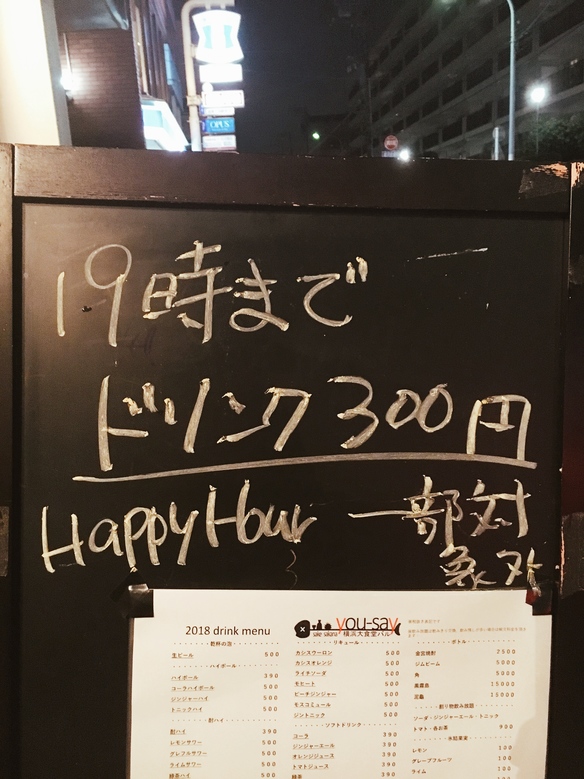 OPUS
19時まで
ドリンク 300円
Happy Hour 一部対
象外
2018 drink menu
you-say
sake sakana 横浜大食堂バル
乾杯の泡
生ビール 500
ハイボール
ハイボール 390
コーラハイボール 500
ジンジャーハイ 500
トニックハイ 500
酎ハイ
酎ハイ 390
レモンサワー 500
グレフルサワー 500
ライムサワー 500
緑茶ハイ 500
リキュール
カシスウーロン 500
カシスオレンジ 500
ライチソーダ 500
モヒート 500
ピーチジンジャー 500
モスコミュール 500
ジントニック 500
ソフトドリンク
コーラ 390
ジンジャーエール 390
オレンジジュース 390
トマトジュース 390
緑茶 390
ボトル
金宮焼酎 2500
ジムビーム 5000
角 5000
黒霧島 15000
三岳 15000
割り物飲み放題
ソーダ・ジンジャーエール・トニック
トマト・各お茶 900
氷結果実
レモン 100
グレープフルーツ 100
ライム 100